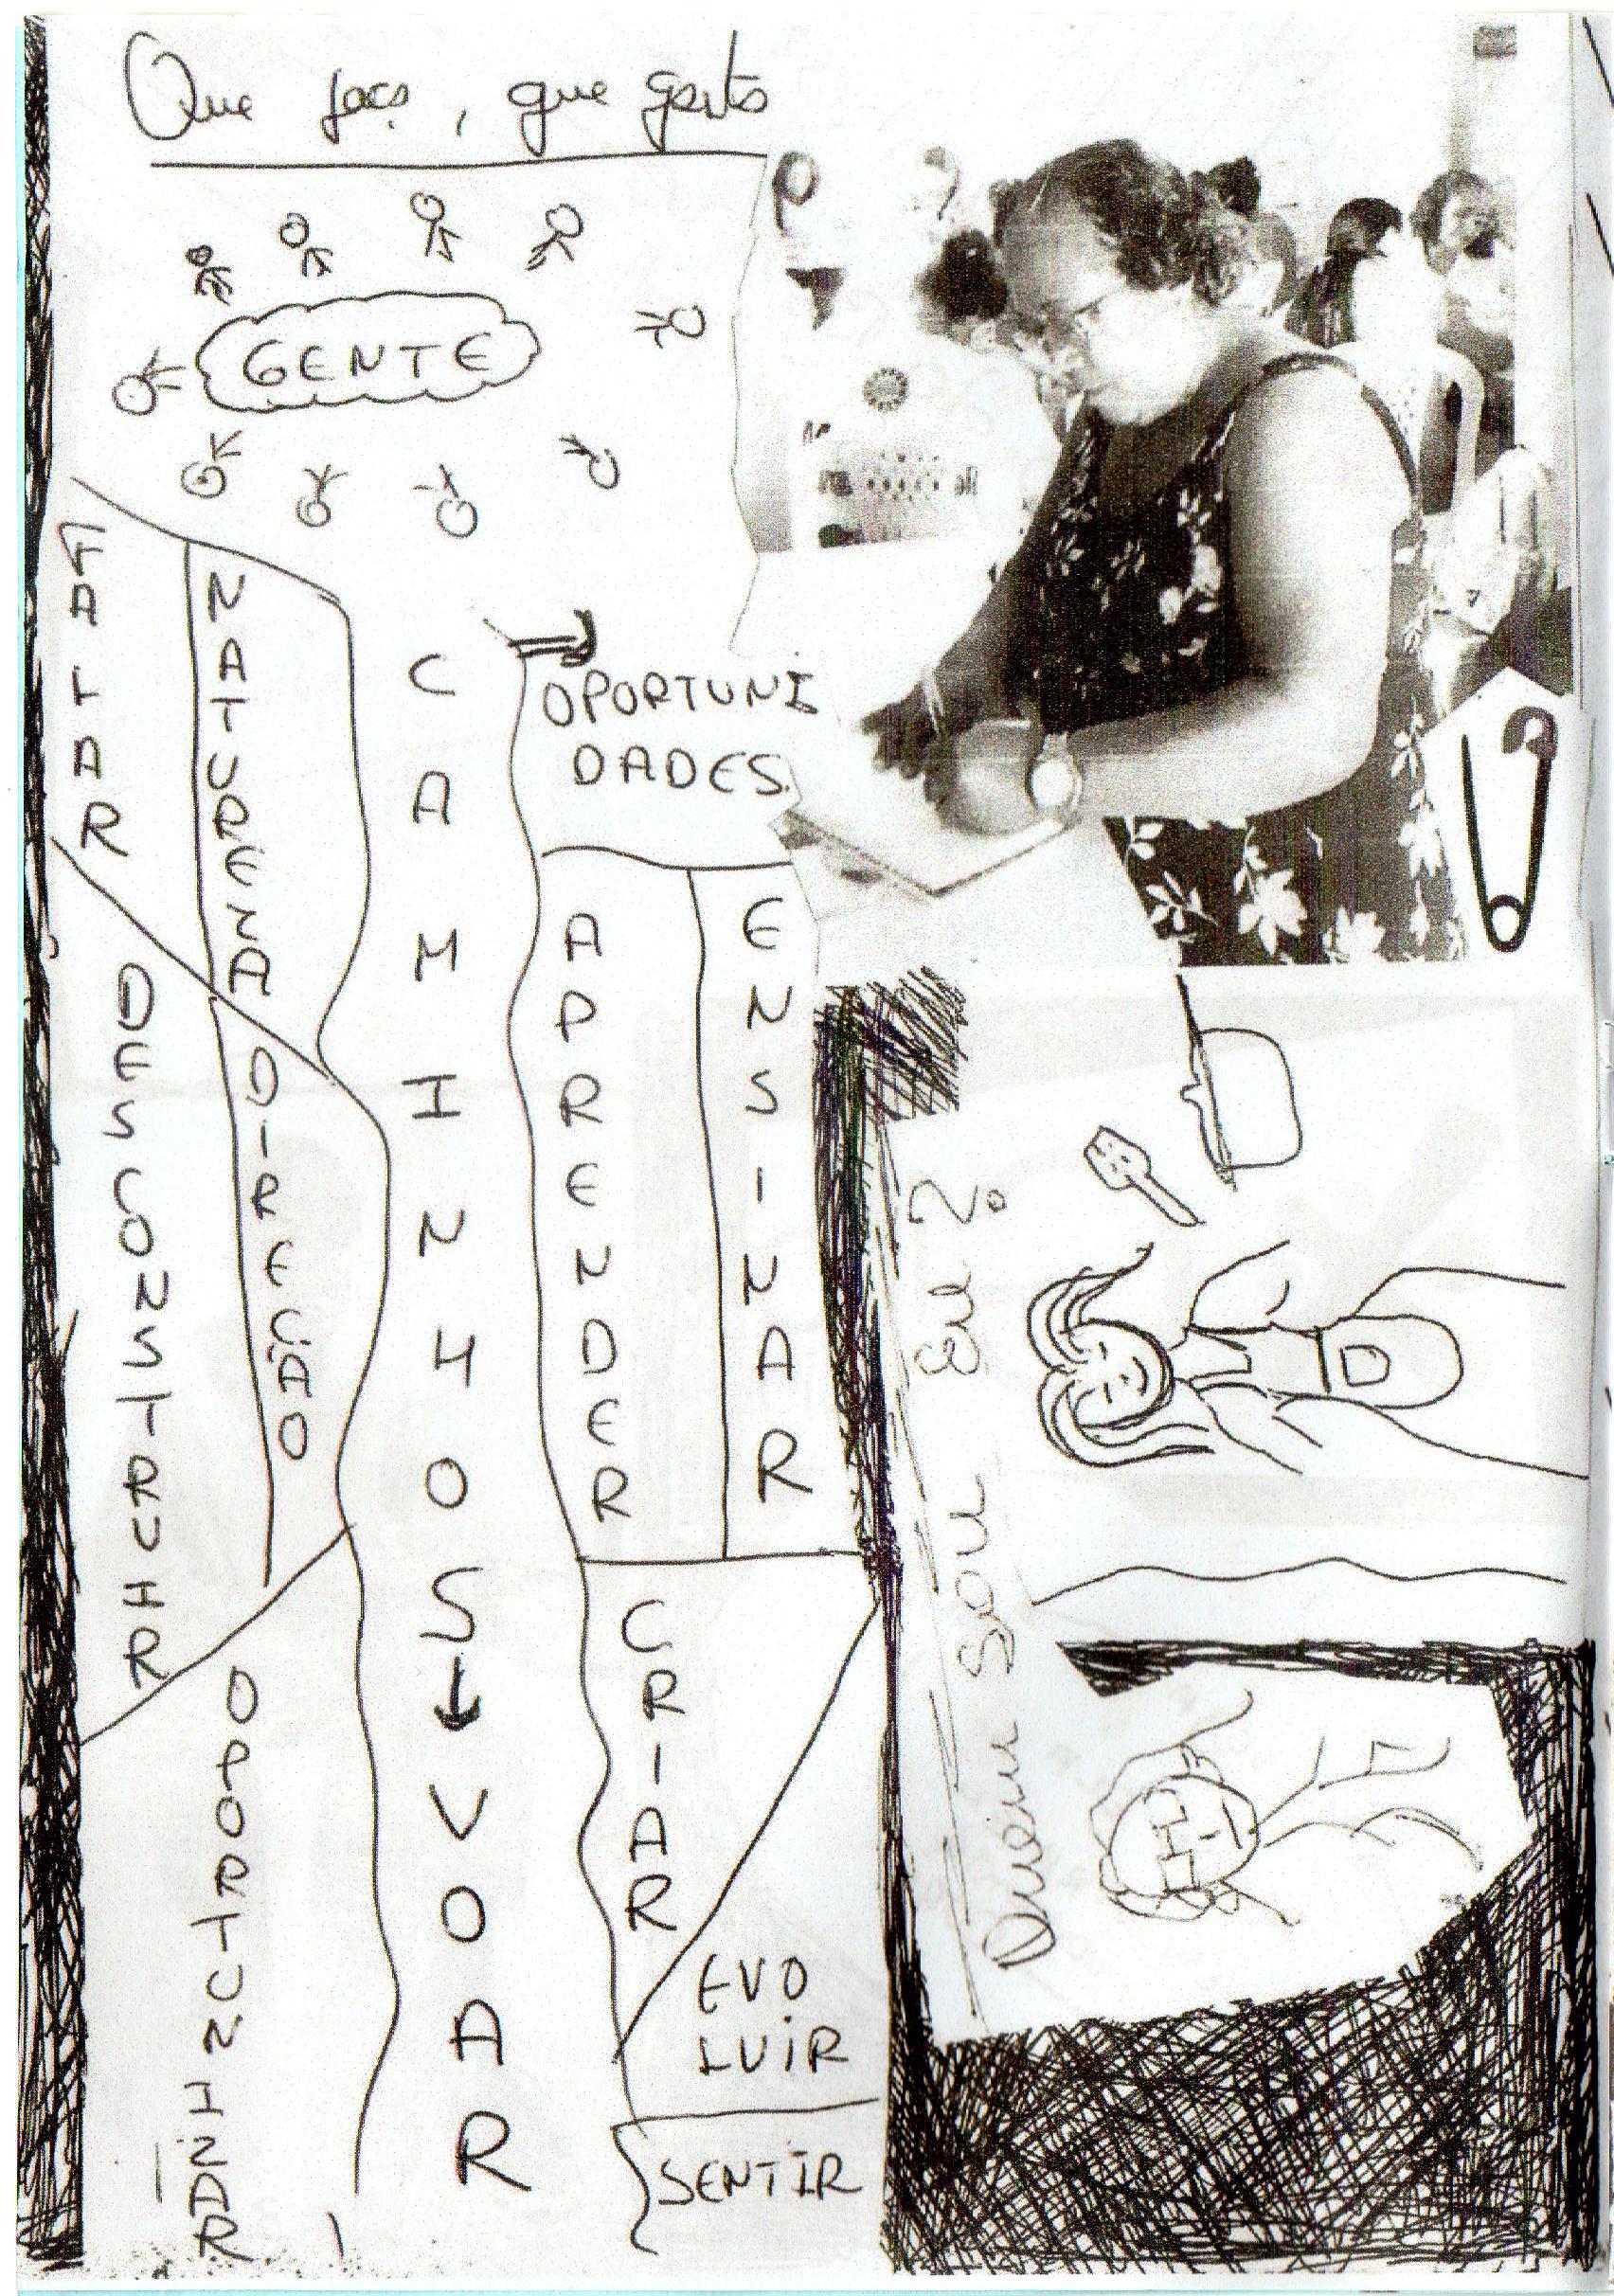 Que faço, que gosto
GENTE
NATUREZA
DIREÇÃO
DESCONSTRUIR
OPORTUNIZAR
CAMINHOS
VOAR
OPORTUNI
DADES
APRENDER
ENSINAR
CRIAR
EVO
LUIR
SENTIR
Quem Sou Eu?